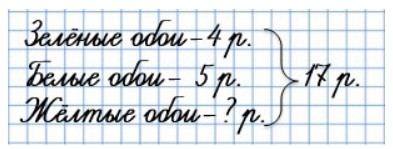 Зелёные обои – 4 р.
Белые обои – 5 р.
Жёлтые обои – ? р.
17 р.